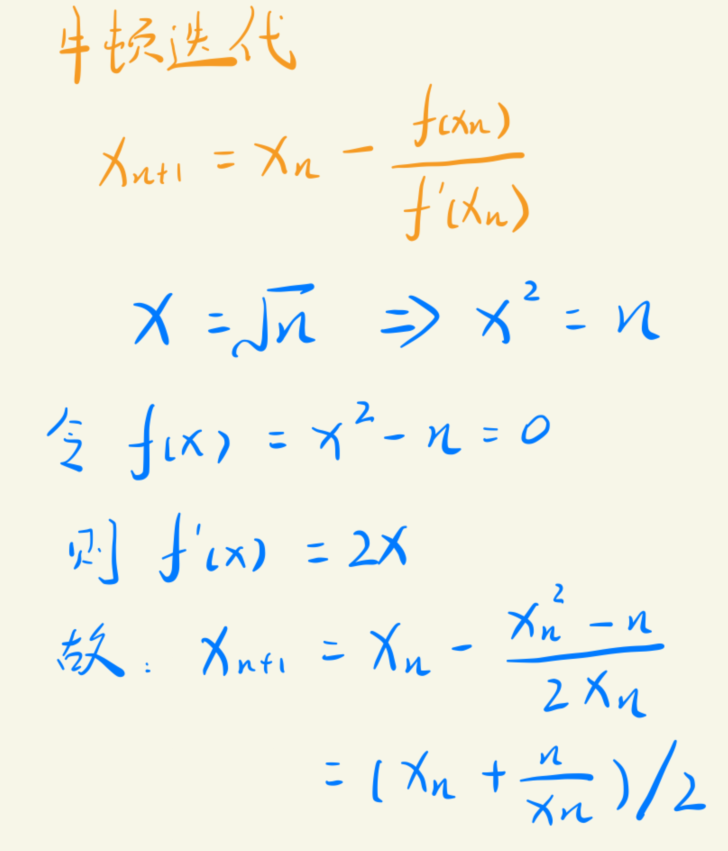 牛顿迭代
xₙ₊₁ = xₙ - f(xₙ)/f'(xₙ)
x = √n ⇒ x² = n
令 f(x) = x² - n = 0
则 f'(x) = 2x
故: xₙ₊₁ = xₙ - (xₙ² - n)/2xₙ
= (xₙ + n/xₙ)/2